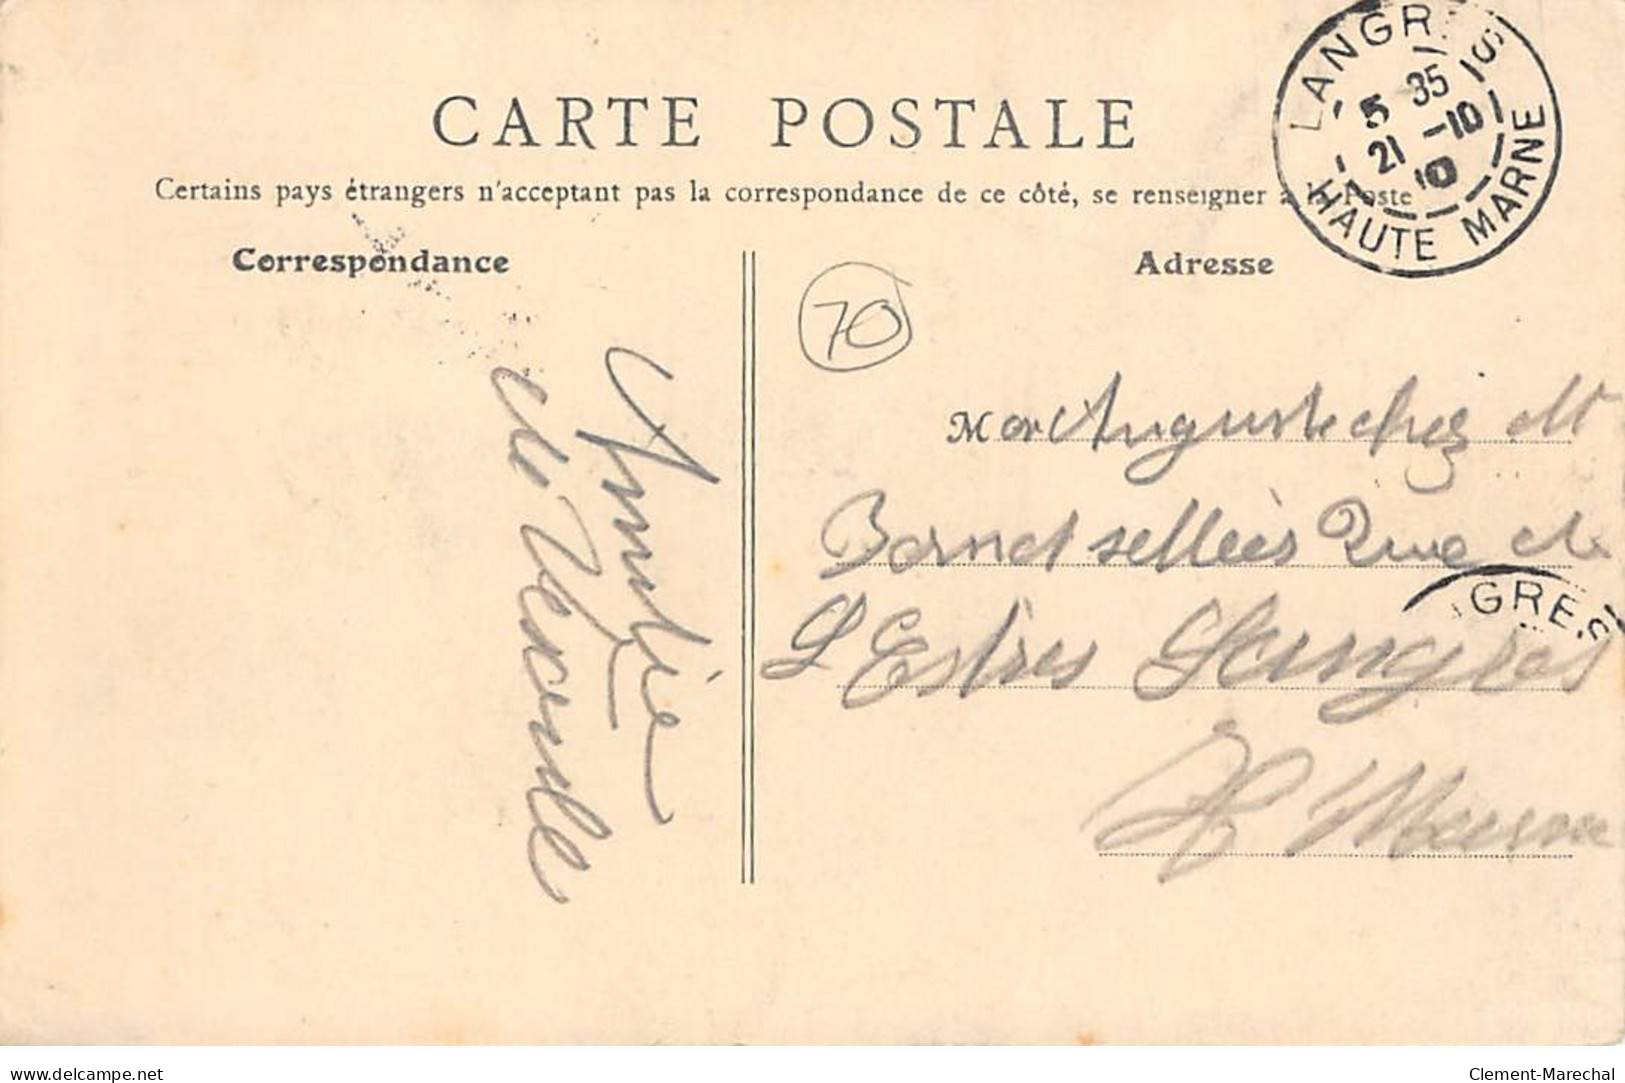 LANGRES
5 35
21 -10
10
HAUTE MARNE
CARTE POSTALE
Certains pays étrangers n'acceptant pas la correspondance de ce côté, se renseigner à la Poste
Correspondance
Adresse
70
Auguste chez Mr
sellier Rue de
L'Estres Langres
H Marne
GRES
Amitié
de Vesoul
delcampe.net
Clement-Marechal